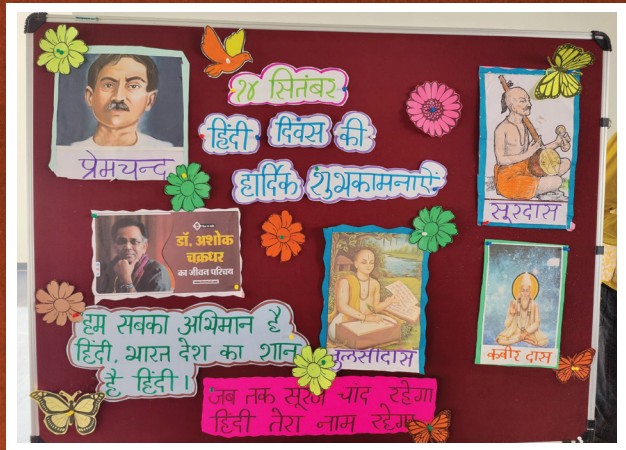 १४ सितंबर
हिंदी दिवस की
हार्दिक शुभकामनाऐं
प्रेमचन्द
सूरदास
डॉ. अशोक
चक्रधर
का जीवन परिचय
तुलसीदास
कबीर दास
हम सबका अभिमान है
हिंदी, भारत देश का शान
है हिंदी।
जब तक सूरज चांद रहेगा
हिंदी तेरा नाम रहेगा